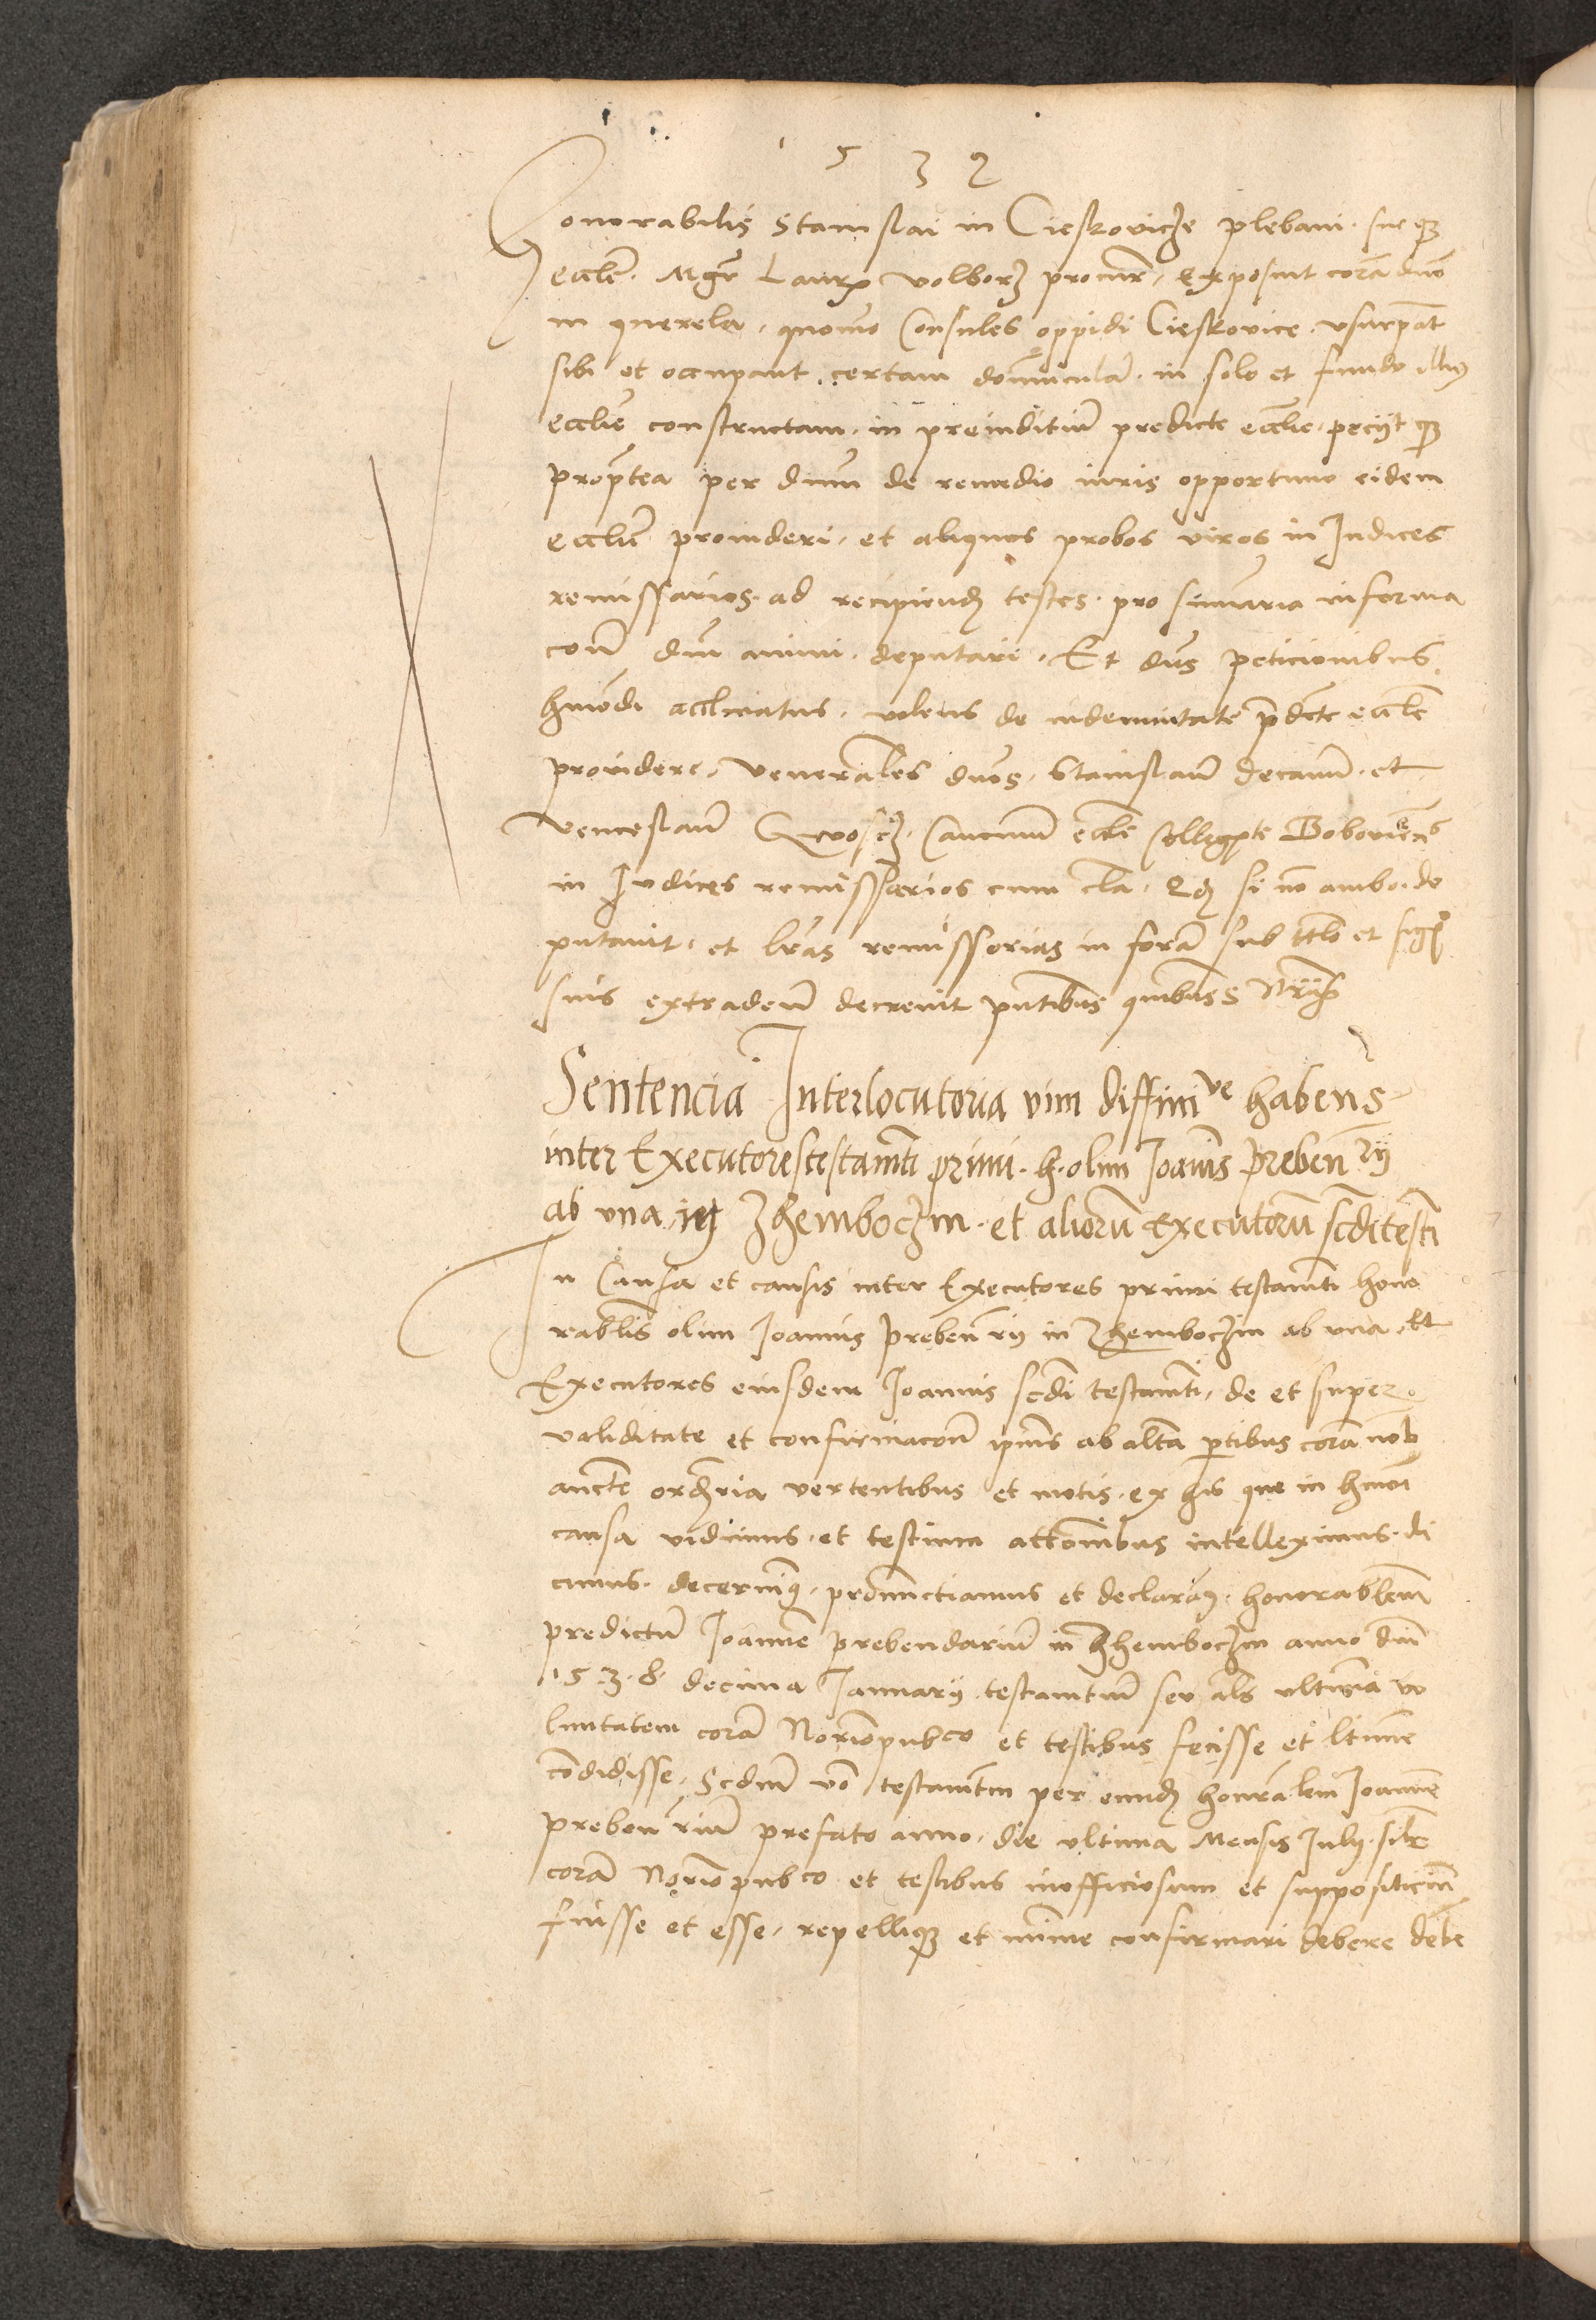 1 5 3 9
Honorabilis Stanislai in Cieskovicze plebani sue qз
eccle͞. Mgr͞ Laur͞ Volborz procur͞ exposuit cora͞ dn͞o
in querela, quomo͞ Consules oppidi Cieskovice usurpa͞t
sibi et occupant certam domu͞cula͞ in solo et fundo illius
eccli͞e constructam in preiuditiu͞ predicte eccl͞ie peciit qз
propt͞ea per dnu͞m de remedio iuris opportuno eidem
eccli͞e provideri, et aliquos probos viros in Iudices
remissarios ad recipiend͞ testes pro sum͞aria informa
con͞e dni͞ animi deputari. Et dn͞s peticionibus
hmo͞di acclinatus, volens de indemnitate p͞dcte͞ eccl͞e
providere, venerabl͞es dn͞os, Stanislau͞ Decanu͞ et
Venceslau͞ Canonicu͞ eccl͞e Collegi͞te Boboviens͞
in Iudices remissarios cum cla͞. Qд si no͞ ambo. de
putavit, et lr͞as remissorias in fora͞ sub ttl͞o et sig͞o
suis extraden͞ decrevit pn͞tibus quibus S
Sentencia Interlocutoria vim diffini͞ve habens
inter Executores testamn͞ti primi. h. olim Ioan͞nis preben͞rii
ab una in Zhemboczin et alioru͞ Executoru͞ scd͞i test͞i
In Causa et causis inter Executores primi testamn͞ti hono
rabl͞is olim Ioannis preben͞rii in Zhemboczin ab una et
Executores eiusdem Ioannis scd͞i testamn͞ti, de et super
validitate et confirmacon͞e ipsius͞ ab alt͞a p͞tibus cora͞ nob͞
aucte͞ ordn͞ria vertentibus et motis, ex his que in hmo͞i
causa vidimus et testium atto͞nibus intelleximus. di
cimus. decernim͞, pronunctiamus et declara͞us honorabl͞em
predictu͞ Ioanne͞ prebendariu͞ in Zhemboczin anno dn͞i
1 5 3 8 decima Ianuarii testamn͞tum seu al͞s ultima͞ vo
luntatem cora͞ Nor͞io pub͞co et testibus fecisse et ltim͞e
co͞didisse, Scd͞um vo͞ testamn͞tm per eund͞ honora͞lem Ioanne͞
preben͞rium prefato anno, die ultima Mensis Iulii sil͞r
cora͞ Nor͞io pub͞co et testibus inofficiosum et suppositiciu͞
fuisse et esse, repelliqз et mi͞nime confirmari debere debe